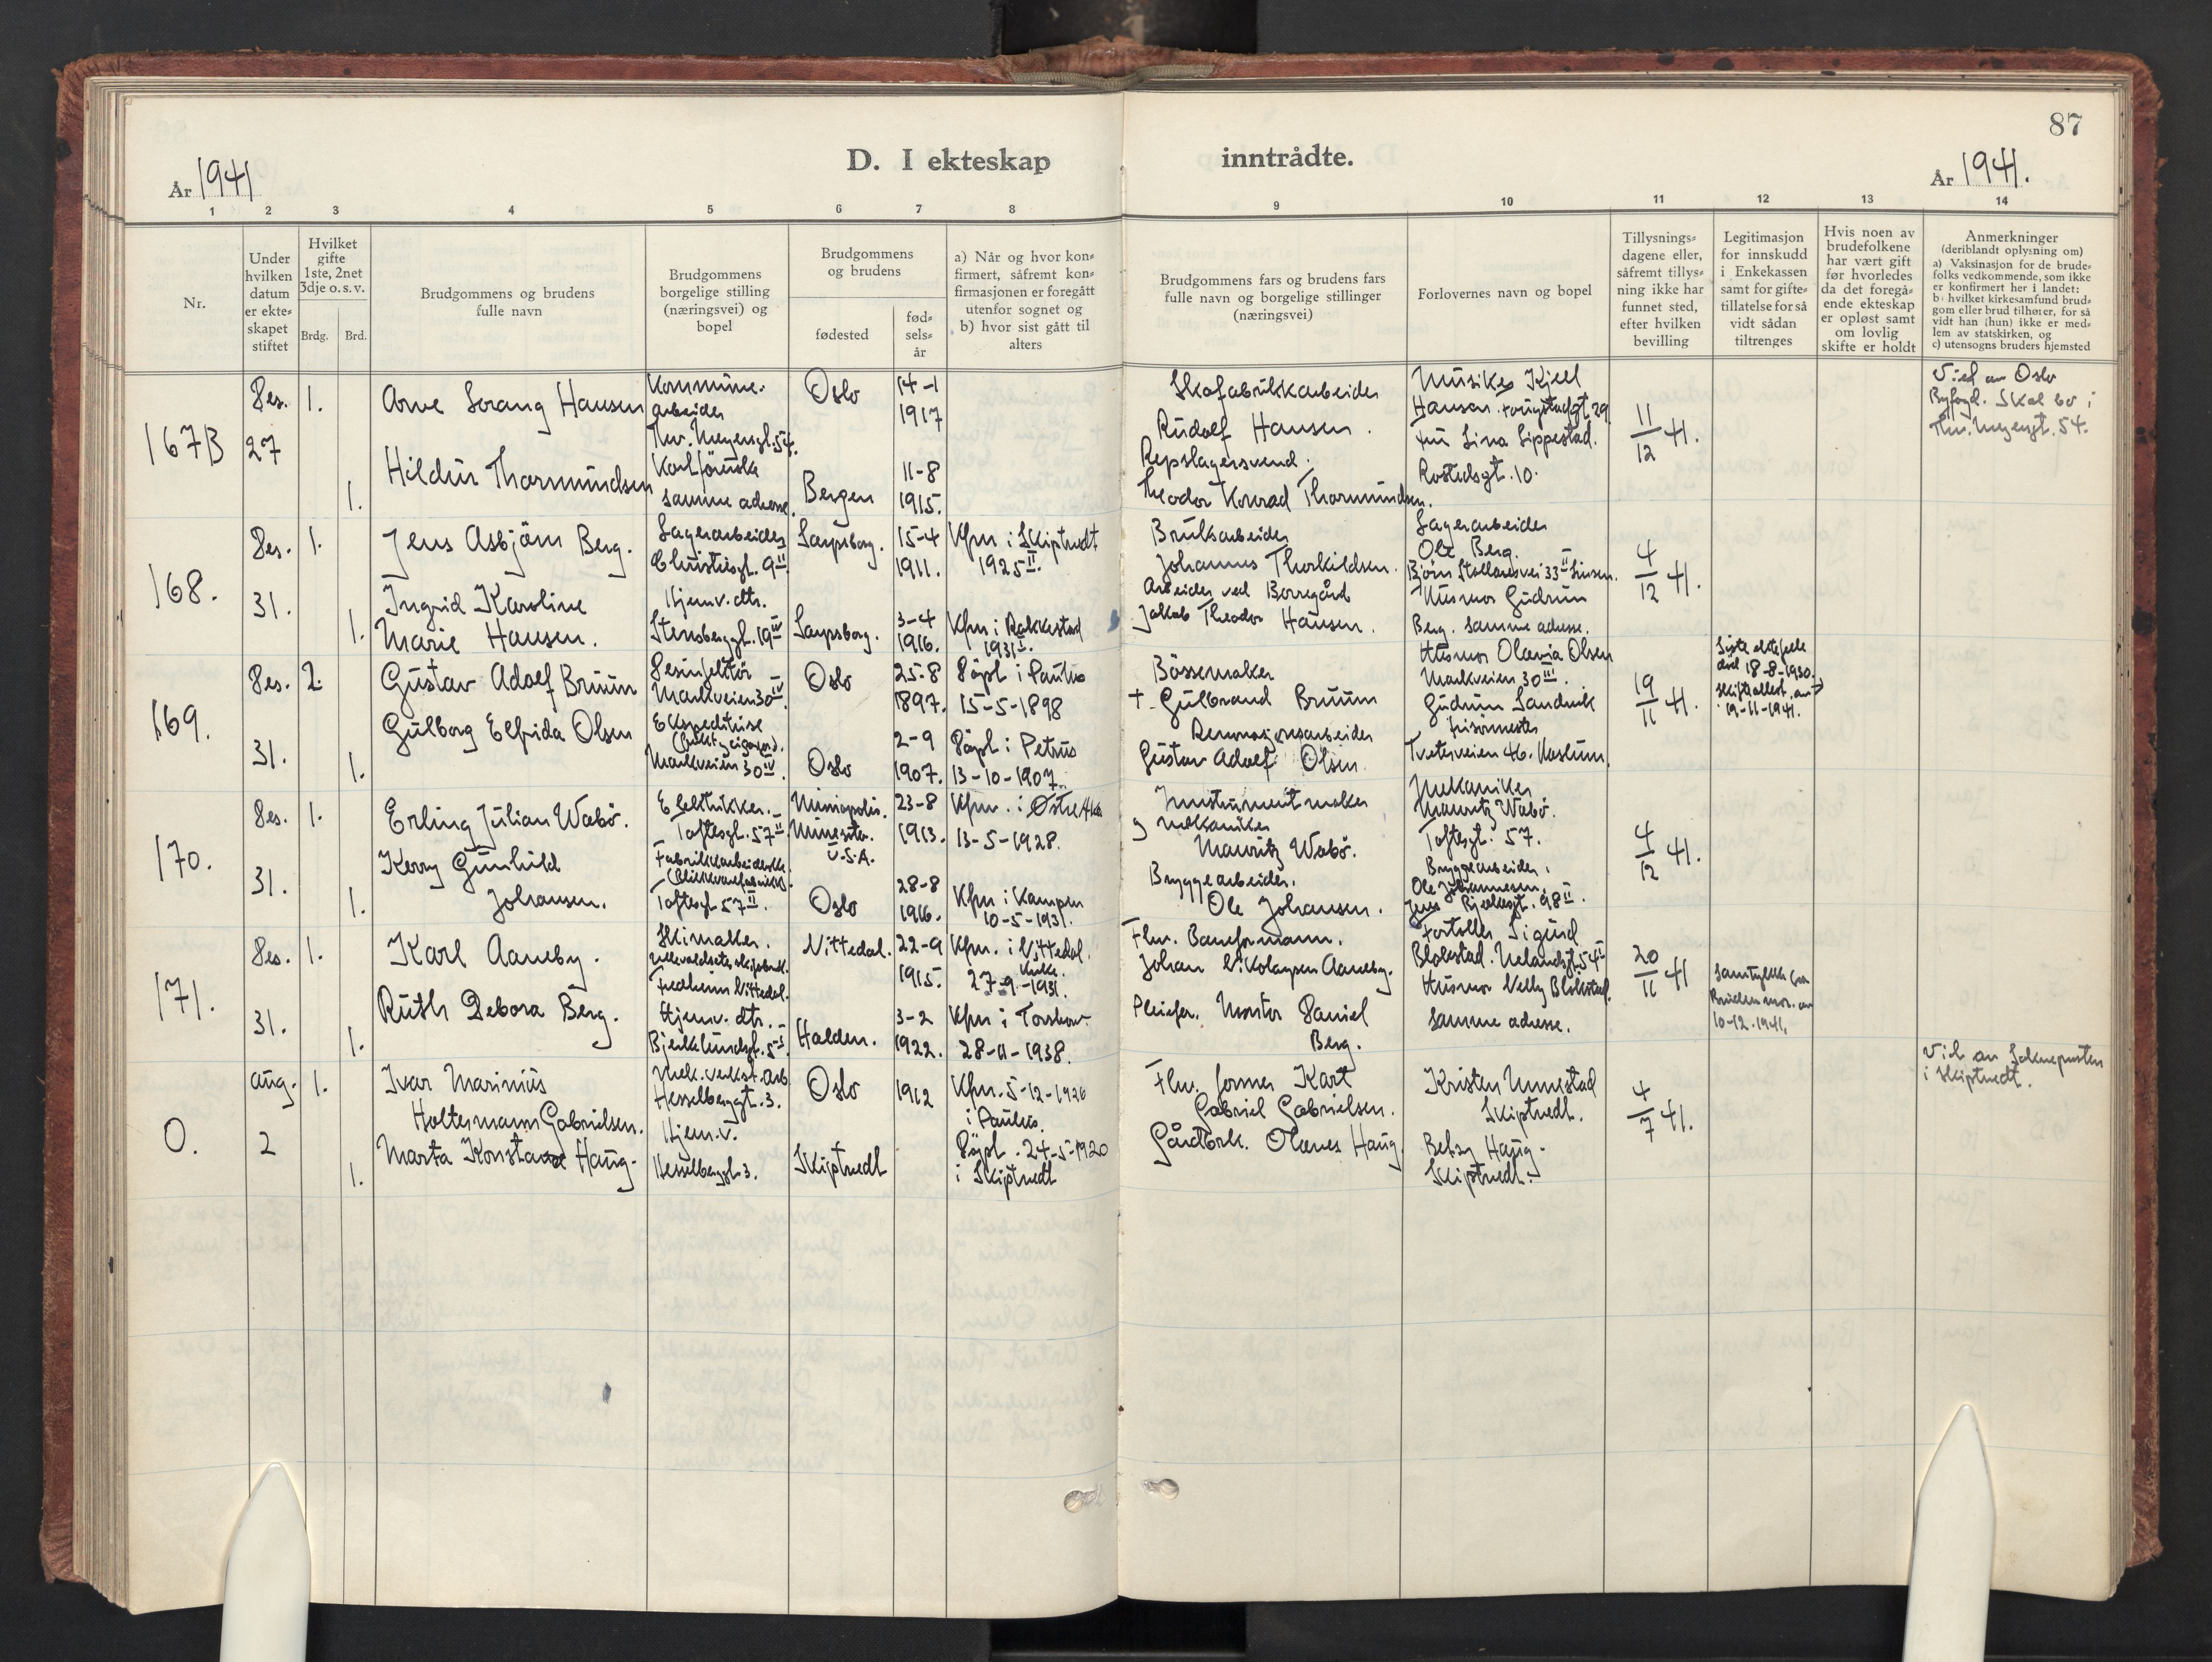 87
D. I ekteskap inntrådte.
År 1941
År 1941.
1 2 3 4 5 6 7 8 9 10 11 12 13 14
Nr.
Under
hvilken
datum
er ekte-
skapet
stiftet
Hvilket
gifte
1ste, 2net
3dje o. s. v.
Brdg. Brd.
Brudgommens og brudens
fulle navn
Brudgommens
borgelige stilling
(næringsvei) og
bopel
Brudgommens
og brudens
fødested
fød-
sels-
år
a) Når og hvor kon-
firmert, såfremt kon-
firmasjonen er foregått
utenfor sognet og
b) hvor sist gått til
alters
Brudgommens fars og brudens fars
fulle navn og borgelige stillinger
(næringsvei)
Forlovernes navn og bopel
Tillysnings-
dagene eller,
såfremt tillys-
ning ikke har
funnet sted,
efter hvilken
bevilling
Legitimasjon
for innskudd
i Enkekassen
samt for gifte-
tillatelse for så
vidt sådan
tiltrenges
Hvis noen av
brudefolkene
har vært gift
før hvorledes
da det foregå-
ende ekteskap
er opløst samt
om lovlig
skifte er holdt
Anmerkninger
(deriblandt oplysning om)
a) Vaksinasjon for de brude-
folks vedkommende, som ikke
er konfirmert her i landet;
b) hvilket kirkesamfund brud-
gom eller brud tilhører, for så
vidt han (hun) ikke er med-
lem av statskirken, og
c) utensogns bruders hjemsted
167B
Des.
27
1.
1.
Arve Sørang Hansen
Hildur Thormundsen
Kommune-
arbeider
Thv. Meyersgt. 54.
samme adresse.
Oslo
Bergen
14-1
1917
11-8
1915.
Skofabrikkarbeider
Rudolf Hansen.
Repslagersvend.
Theodor Konrad Thormundsen.
Musiker Kjell
Hansen.
Fru Lina Lippestad.
Rostedsgt. 10.
11
12 41.
Viet av Oslo
Byfogd. Skal bo i
Thv. Meyersgt. 54.
168.
Des.
31.
1.
1.
Jens Asbjørn Berg.
Ingrid Karoline
Marie Hansen.
Lagerarbeider
Christiesgt. 9 II.
Hjemv. dtr.
Stensberggt. 19 IV
Sarpsborg.
Sarpsborg.
15-4
1911.
3-4
1916.
Kfm i Skiptvedt
1925 II.
Kfm i Rakkestad
1931 II.
Bruksarbeider
Johannes Thorkildsen.
Arbeider ved Borregård
Jakob Theodor Hansen.
Lagerarbeider
Ole Berg.
Husmor Gudrun
Berg. samme adresse.
4
12 41.
169.
Des.
31.
2.
1.
Gustav Adolf Bruun
Gulborg Elfrida Olsen
Desinfektør
Markveien 30 IV.
Ekspeditrise
Markveien 30 IV.
Oslo
Oslo
25-8
1897.
2-9
1907.
Døpt i Paulus
15-5-1898
Døpt i Petrus
13-10-1907.
Bössemaker
+ Gulbrand Bruun
Renovasjonsarbeider
Gustav Adolf Olsen
Husmor Olavia Olsen
Markveien 30 III.
Gudrun Sandvik
frisørmester
Tvetersveien 46.
19
11 41.
Siste ektefelle
død 18-8-1930.
Skifteattest av
19-11-1941.
170.
Des.
31.
1.
1.
Erling Julian Wabø.
Kerry Gunhild
Johansen.
Elektrikker.
Toftesgt. 57 II
Fabrikkarbeiderske
Toftesgt 57 II.
Minneapolis.
U.S.A.
Oslo
23-8
1913.
28-8
1916.
Kfm. i Østre Aker
13-5-1928.
Kfm i Kampen
10-5-1931.
Instrumentmaker
og mekaniker
Mauritz Wabø.
Bryggearbeider.
Ole Johansen.
Mekaniker
Mauritz Wabø.
Toftesgt. 57.
Bryggearbeider.
Ole Johannesen.
Jens Bjelkesgt. 98 II.
4
12 41.
171.
Des.
31.
1.
1.
Karl Aaneby.
Ruth Debora Berg.
Skimaker.
Fredheim Nittedal.
Hjemv. dtr.
Bjerklundsgt. 5
Nittedal.
Halden.
22-9
1915.
3-2
1922.
Kfm. i Nittedal
kirke.
27-9-1931.
Kfm i Torshov
28-11-1938.
Fhv. Baneformann.
Johan Nikolaysen Aaneby.
Pleiefar. Montør Daniel
Berg.
Fortoller Sigurd
Blokstad. Uelandsgt 54 II
Husmor Nelly Blokstad.
samme adresse.
20
11 41
Samtykke fra
Brudens mor. av
10-12-1941.
0.
Aug.
2
1.
1.
Ivar Marinius
Holtermann Gabrielsen.
Marta Konstanse Haug.
Mek. verkst. arb
Hesselberggt. 3.
Hjem.v.
Hesselberggt. 3.
Oslo
Skiptvedt
1912
Kfm. 5-12-1926
i Paulus.
Døpt. 24-5-1920
i Skiptvedt
Fhv. former Kart
Gabriel Gabrielsen.
Gårdbrk. Olaves Haug.
Kristen Unnestad
Skiptvedt.
Betsy Haug.
Skiptvedt.
4
7 41.
Viet av Sognepresten
i Skiptvedt.